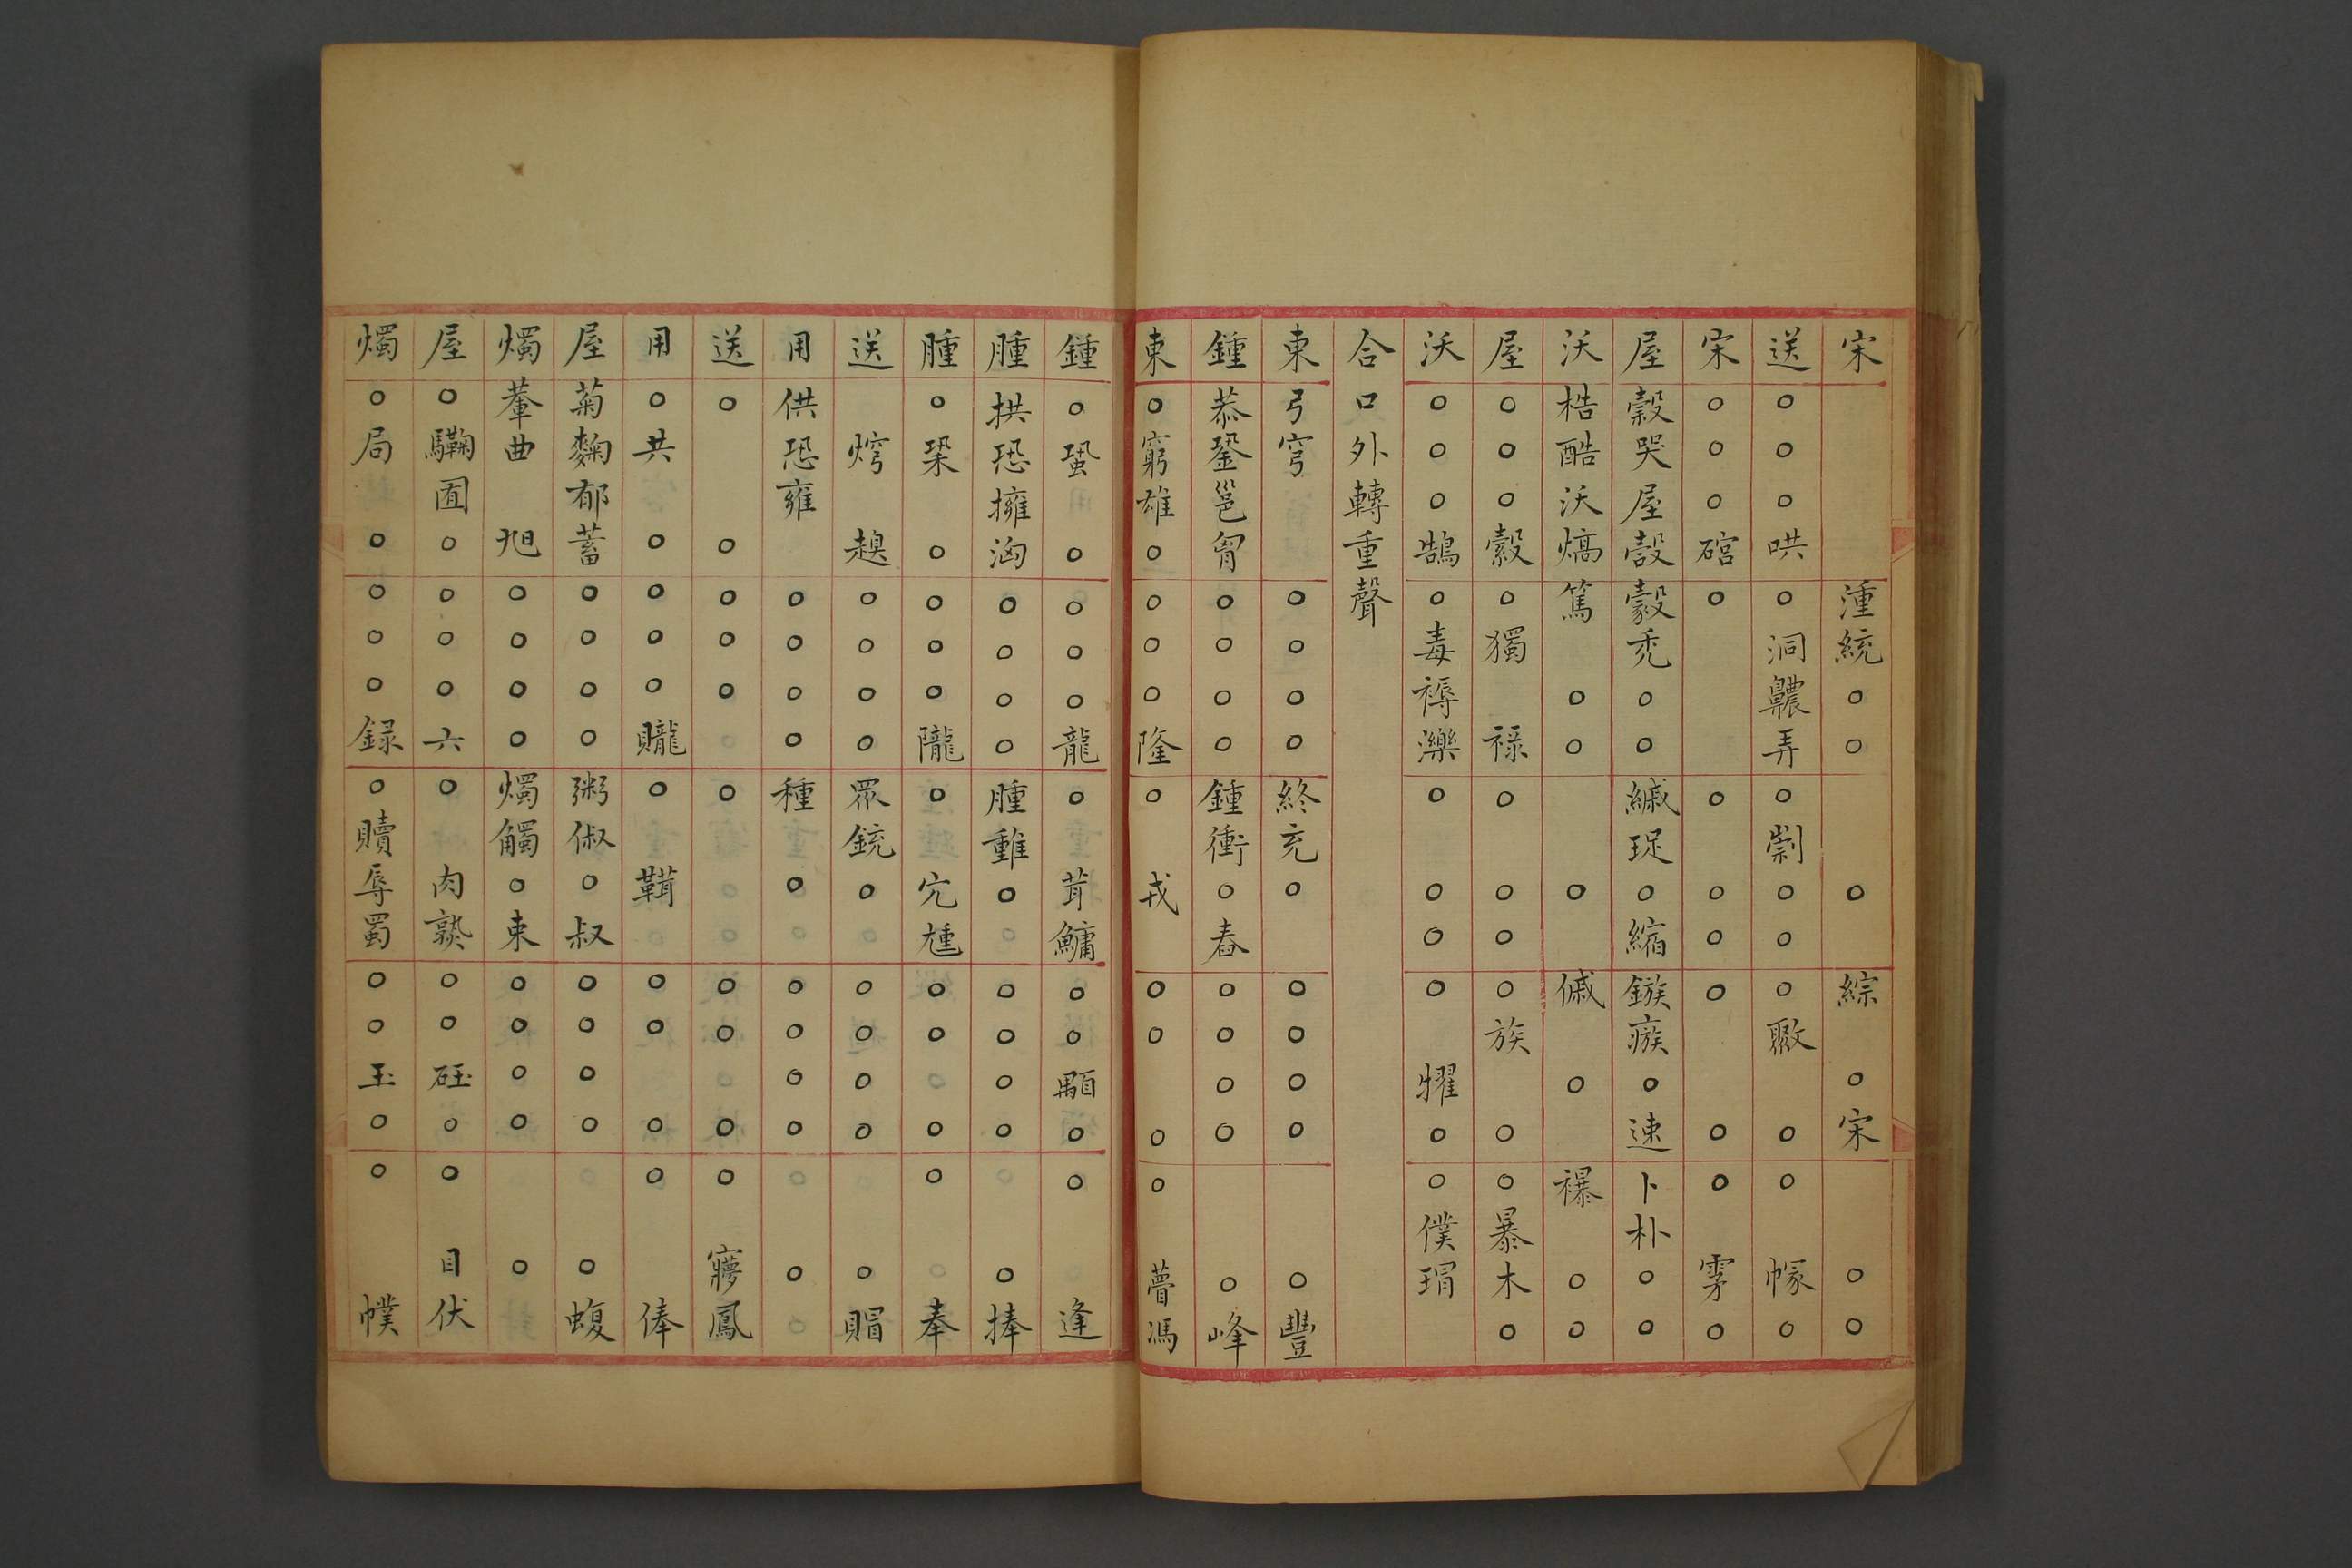 宋湩統○○○綜○宋○○
送○○○哄○洞齈弄○剬○○○䎫○幏○
宋○○○碚○○○○○○○雺○
屋穀哭屋嗀豰禿○○縬珿○縮鏃瘯○速卜朴○○
沃梏酷沃熇篤○○○傶○襮○○
屋○○○縠○獨祿○○○○族○○暴木○
沃○○○鵠○毒褥濼○○○○㸌○○僕瑁
合口外轉重聲
東弓穹○○○○終充○○○○○○豐
鍾恭銎邕匈○○○○鍾衝○舂○○○○○峰
東○窮雄○○○○隆○戎○○○○瞢馮
鍾○蛩○○○○龍○茸鱅○○顒○○逢
腫拱恐擁洶○○○○腫㷓○○○○○○○捧
腫○㭟○○○○隴○宂尰○○○○奉
送焪趮○○○○眾銃○○○○○○賵
用供恐雍○○○○種○○○○○○
送○○○○○○○○○○寱鳳
用○共○○○○贚○鞧○○○○俸
屋菊麴郁蓄○○○○粥俶○叔○○○○○蝮
燭輂曲旭○○○○燭觸○束○○○○○
屋○驧囿○○○○六○肉熟○○砡○○目伏
燭○局○○○○録○贖辱蜀○○玉○○幞